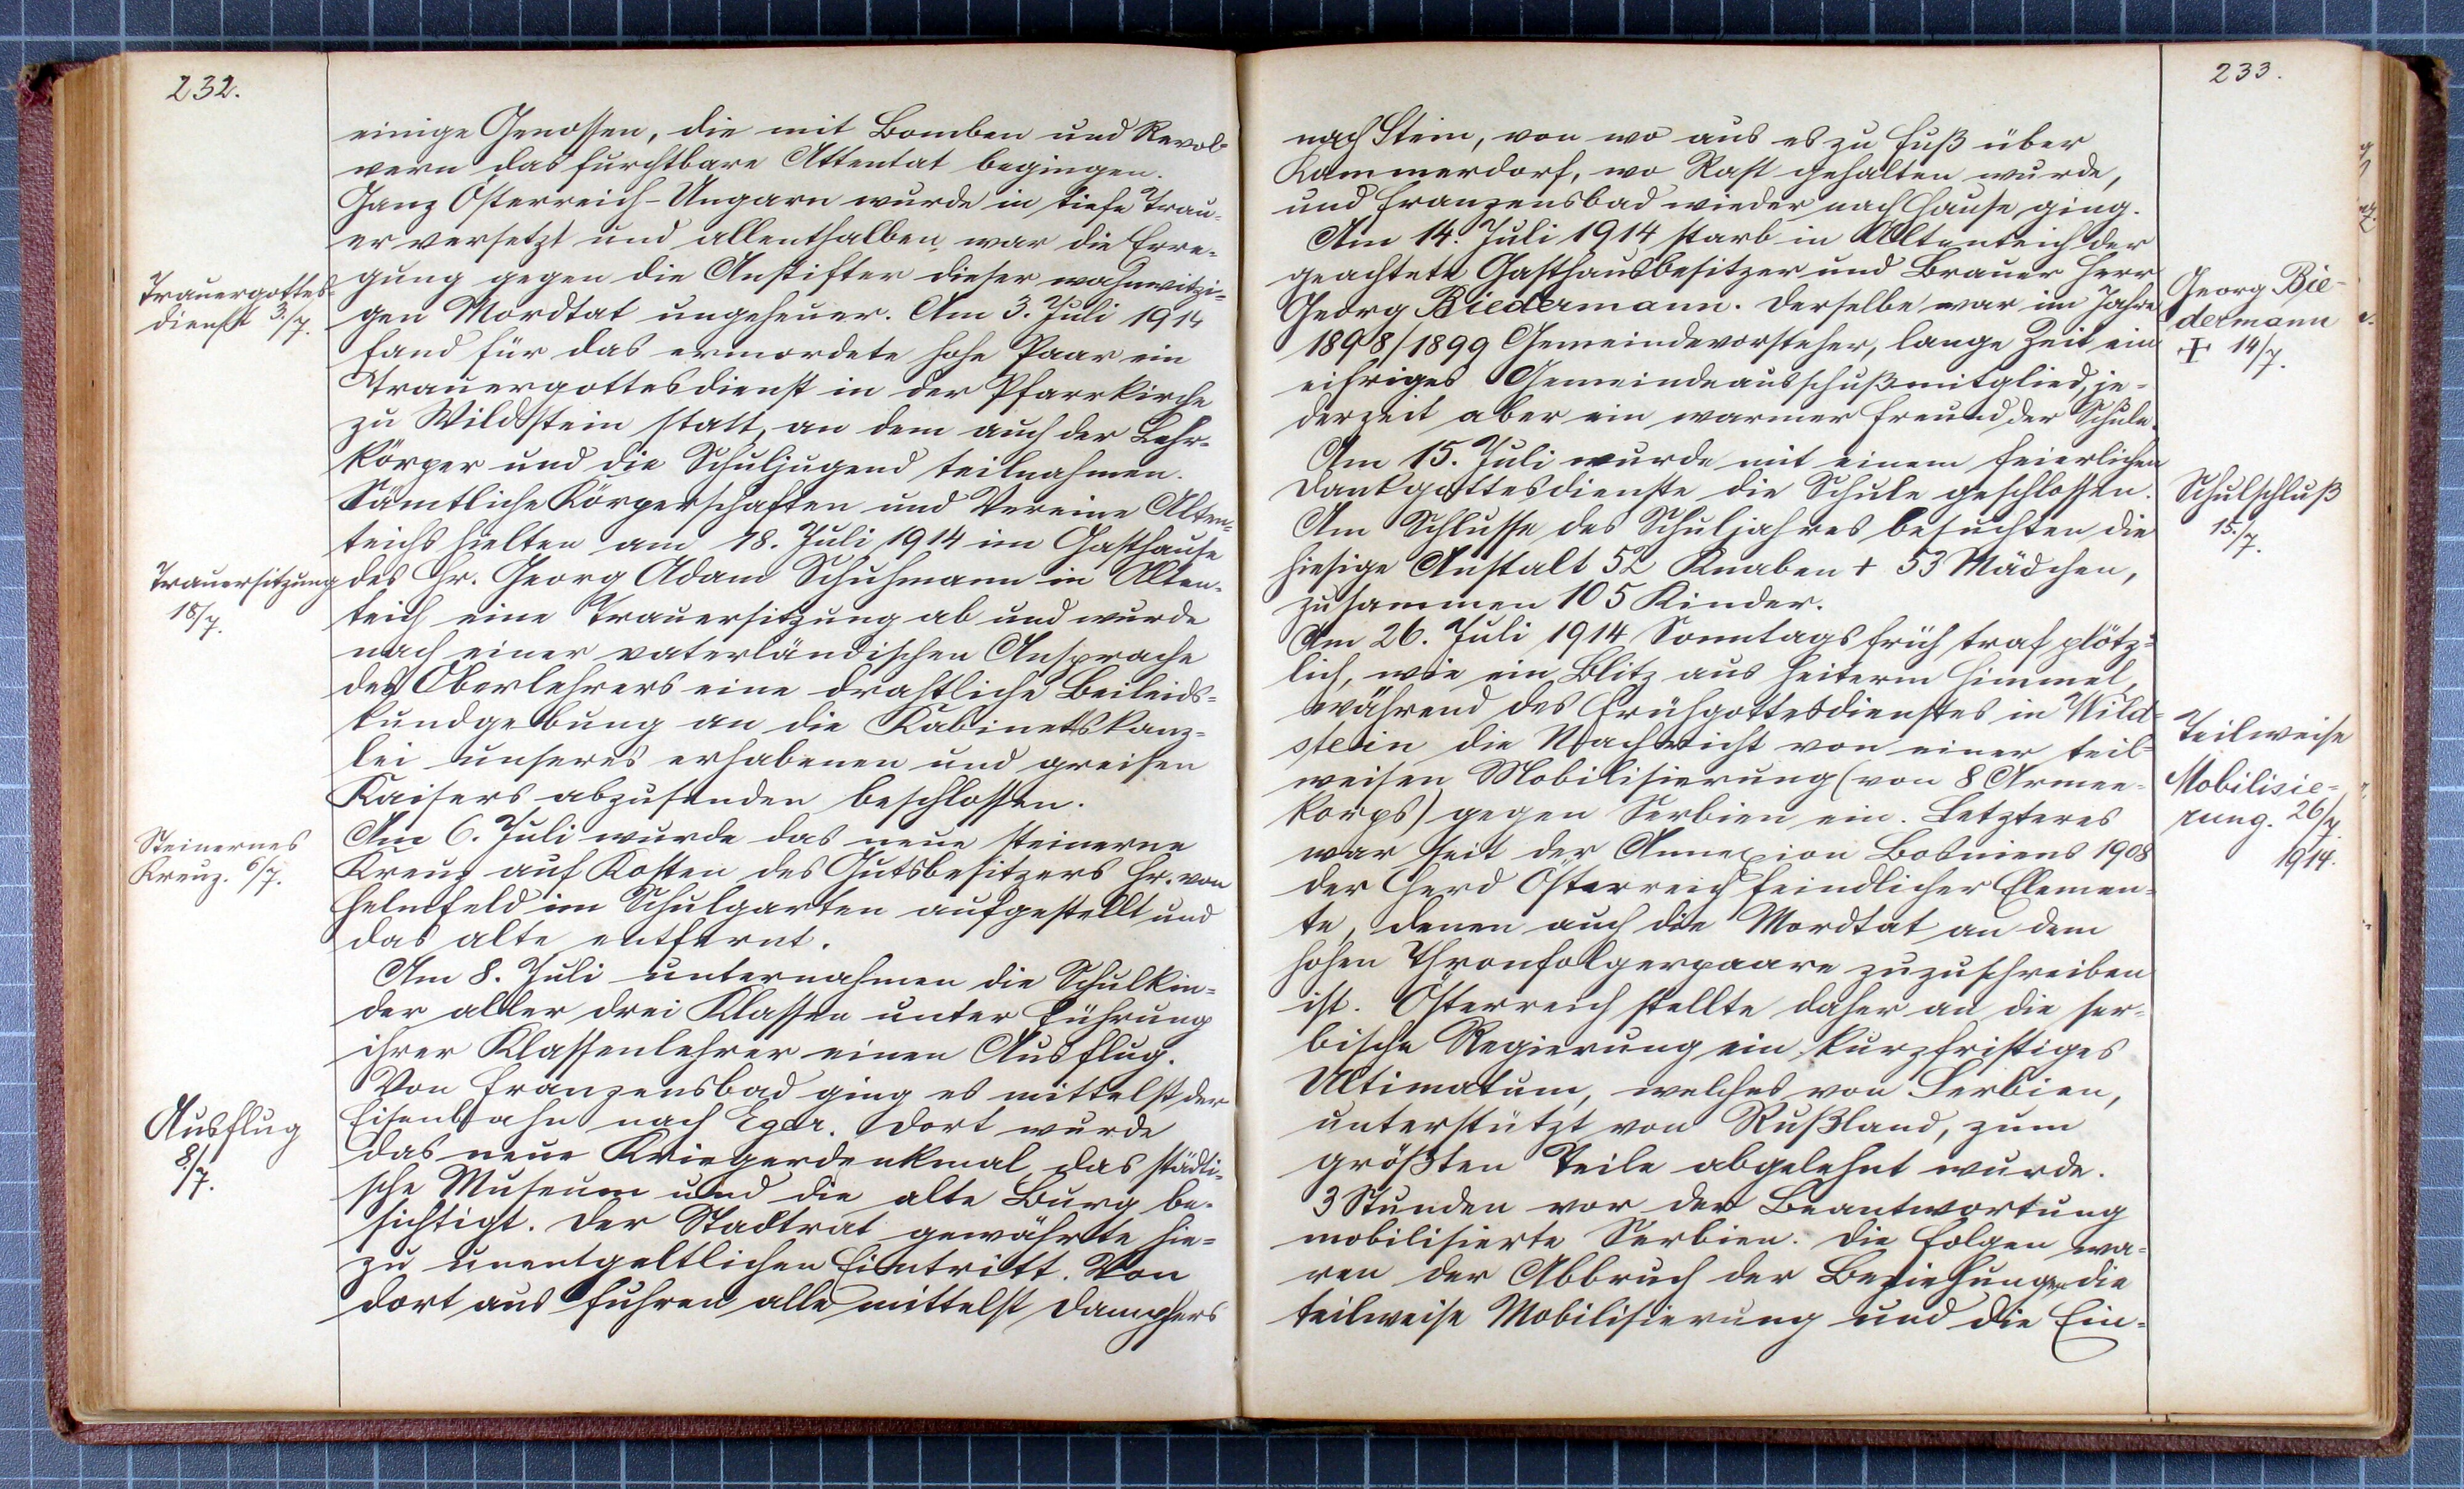 232.
einige Genossen, die mit Bomben und Revol-
vern das furchtbare Attentat begingen.
Ganz Österreich-Ungarn wurde in tiefe Trau-
er versetzt und allenthalben war die Erre-
gung gegen die Anstifter dieser wahnwitzi-
gen Mordtat ungeheuer. Am 3. Juli 1914
Trauergottes-
dienst 3./7.
fand für das ermordete hohe Paar ein
Trauergottesdienst in der Pfarrkirche
zu Wildstein statt, an dem auch der Lehr-
körper und die Schuljugend teilnahmen.
Sämtliche Körperschaften und Vereine Alten-
teichs hielten am 18. Juli 1914 im Gasthause
des Hr. Georg Adam Schuhmann in Alten-
Trauersitzung
18/7.
teich eine Trauersitzung ab und wurde
nach einer vaterländischen Ansprache
des Oberlehrers eine drahtliche Beileids-
kundgebung an die Kabinettskanz-
lei unseres erhabenen und greisen
Kaisers abzusenden beschlossen.
Am 6. Juli wurde das neue steinerne
Steinernes
Kreuz. 6/7.
Kreuz auf Kosten des Gutsbesitzers Hr. von
Helmfeld im Schulgarten aufgestellt und
das alte entfernt.
Am 8. Juli unternahmen die Schulkin-
der aller drei Klassen unter Führung
ihrer Klassenlehrer einen Ausflug.
Von Franzensbad ging es mittelst der
Ausflug
8./7.
Eisenbahn nach Eger. Dort wurde
das neue Kriegerdenkmal, das städti-
sche Museum und die alte Burg be-
sichtigt. Der Stadtrat gewährte hie-
zu unentgeltlichen Eintritt. Von
dort aus fuhren alle mittelst Dampfers
233.
nach Stein, von wo aus es zu Fuß über
Kammerdorf, wo Rast gehalten wurde,
und Franzensbad wieder nach Hause ging.
Am 14. Juli 1914 starb in Altenteich der
geachtete Gasthausbesitzer und Brauer Herr
Georg Biedermann. Derselbe war im Jahre
Georg Bie-
dermann
+ 14/7.
1898/1899 Gemeindevorsteher, lange Zeit ein
eifriges Gemeindeausschußmitglied, je-
derzeit aber ein warmer Freund der Schule.
Am 15. Juli wurde mit einem feierlichen
Dankgottesdienste die Schule geschlossen.
Schulschluß
15./7.
Am Schlusse des Schuljahres besuchten die
hiesige Anstalt 52 Knaben + 53 Mädchen,
zusammen 105 Kinder.
Am 26. Juli 1914 Sonntags früh traf plötz-
lich, wie ein Blitz aus heiterm Himmel,
während des Frühgottesdienstes in Wild-
stein die Nachricht von einer teil-
Teilweise
Mobilisie-
rung. 26/7.
1914.
weisen Mobilisierung (von 8 Armee-
korps) gegen Serbien ein. Letzteres
war seit der Annexion Bosniens 1908
der Herd Österreich feindlicher Elemen-
te, denen auch die Mordtat an dem
hohen Thronfolgerpaare zuzuschreiben
ist. Österreich stellte daher an die ser-
bische Regierung ein kurzfristiges
Ultimatum, welches von Serbien,
unterstützt von Rußland, zum
größten Teile abgelehnt wurde.
3 Stunden vor der Beantwortung
mobilisierte Serbien. Die Folgen wa-
ren der Abbruch der Beziehungen die
teilweise Mobilisierung und die Ein-